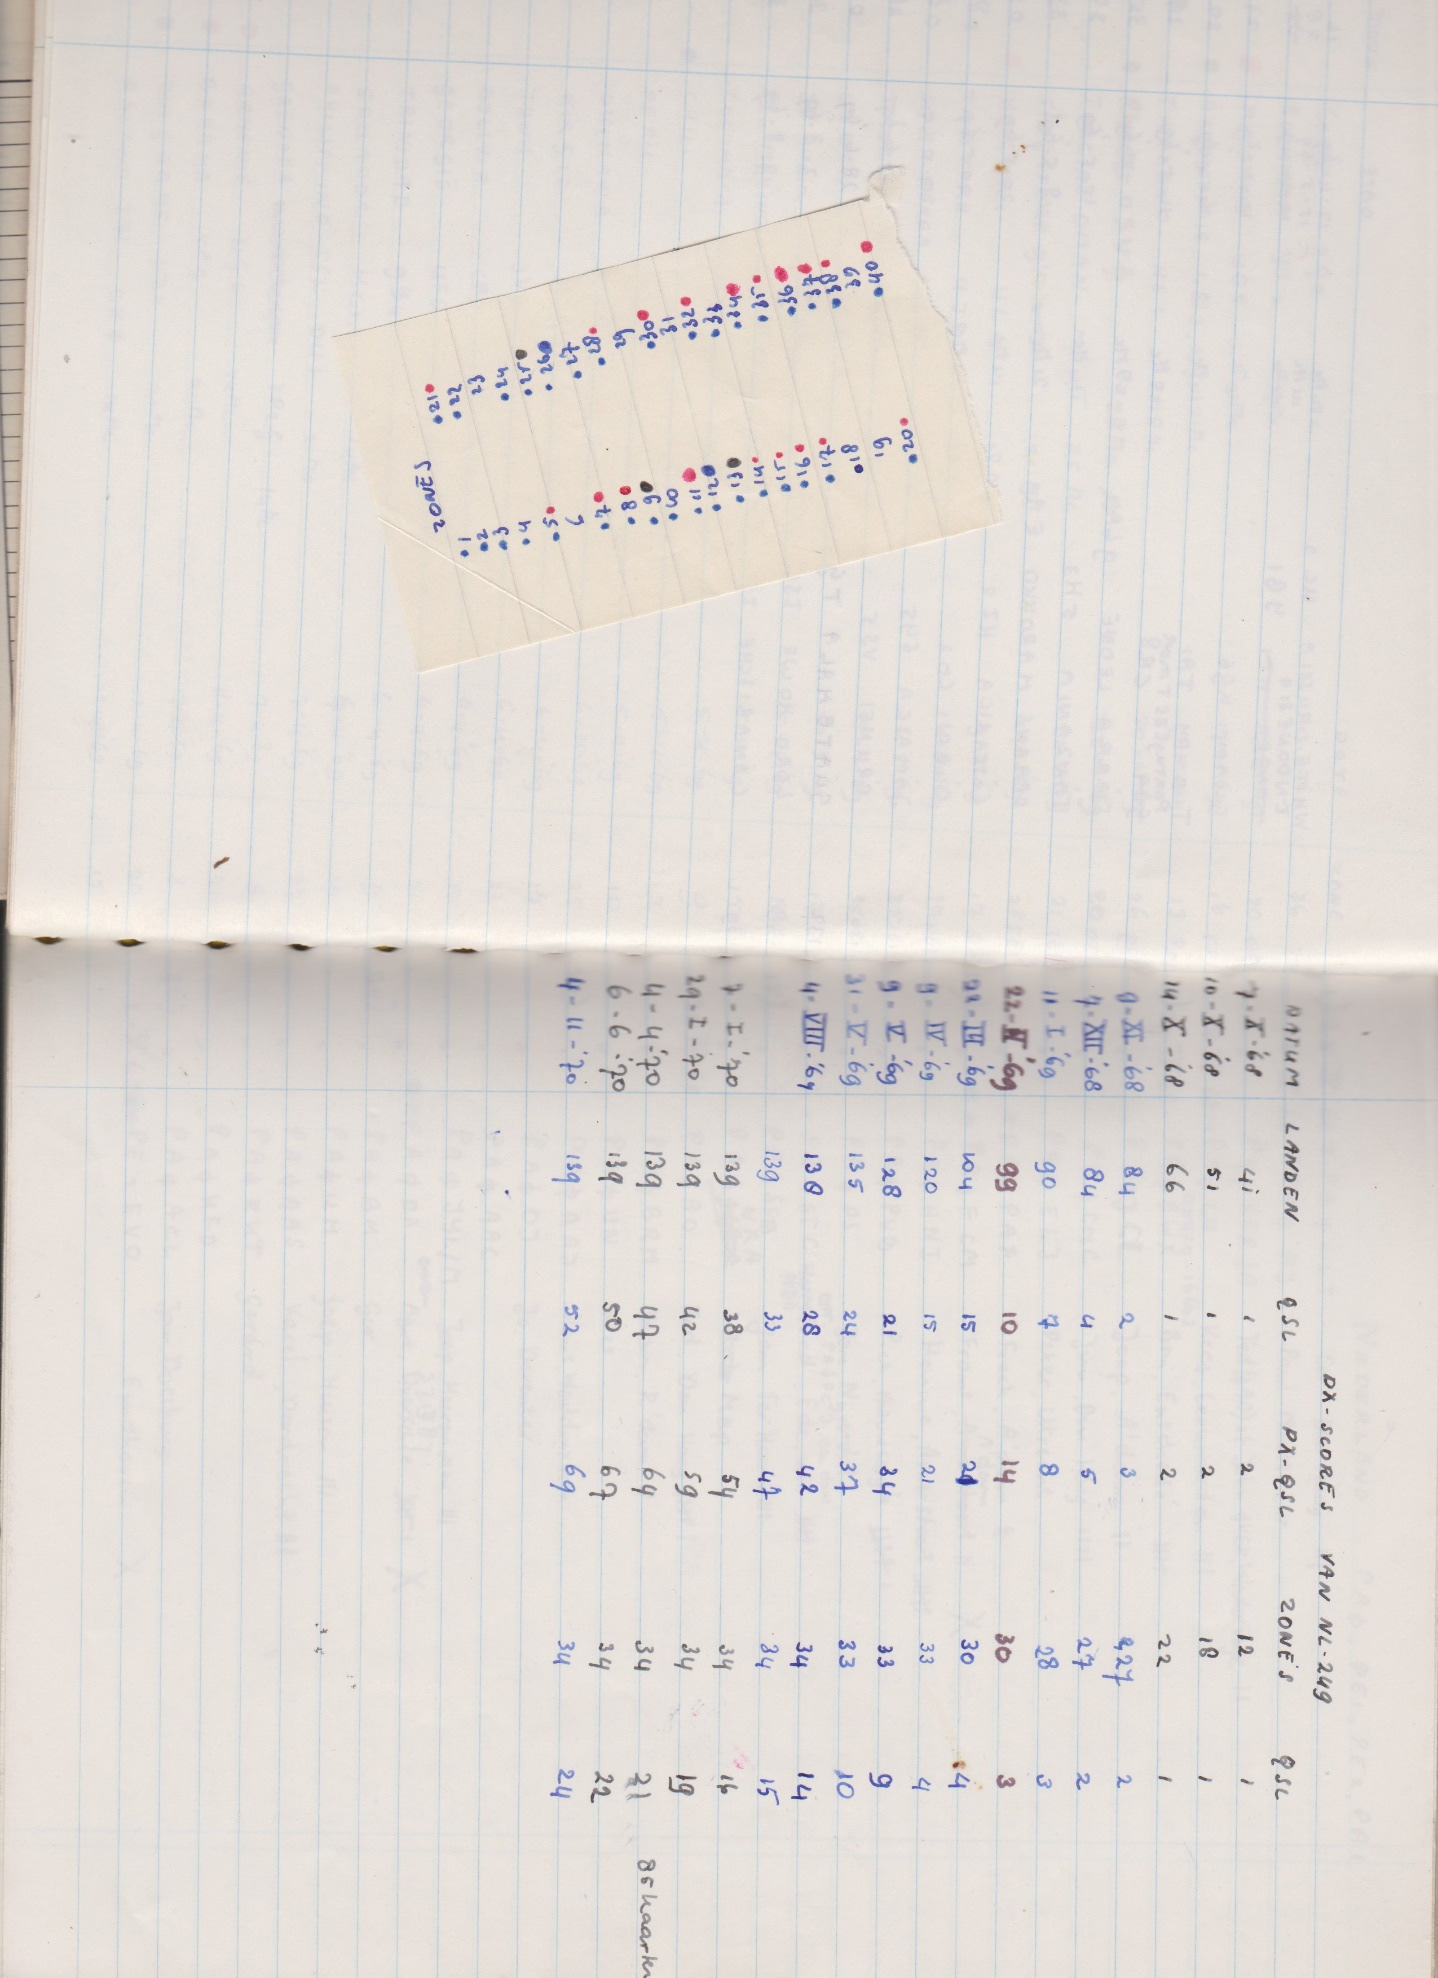 DX-SCORES VAN NL-249
DATUM LANDEN QSL PX-QSL ZONES QSL
7-X-'68 41 1 2 12 1
10-X-'68 51 1 2 18 1
14-X-'68 66 1 2 22 1
9-XI-'68 84 2 3 27 2
7-XII-'68 84 4 5 27 2
11-I-'69 90 7 8 28 3
22-II-'69 99 10 14 30 3
22-III-'69 104 15 21 30 4
9-IV-'69 120 15 21 33 4
9-V-'69 128 21 34 33 9
31-V-'69 135 24 37 33 10
4-VIII-'69 138 28 42 34 14
139 33 47 34 15
7-I-'70 139 38 54 34 16
29-I-'70 139 42 59 34 19
4-4-'70 139 47 64 34 21 86 kaarten
6-6-'70 139 50 67 34 22
4-11-'70 139 52 69 34 24
ZONES
1 21
2 22
3 23
4 24
5 25
6 26
7 27
8 28
9 29
10 30
11 31
12 32
13 33
14 34
15 35
16 36
17 37
18 38
19 39
20 40